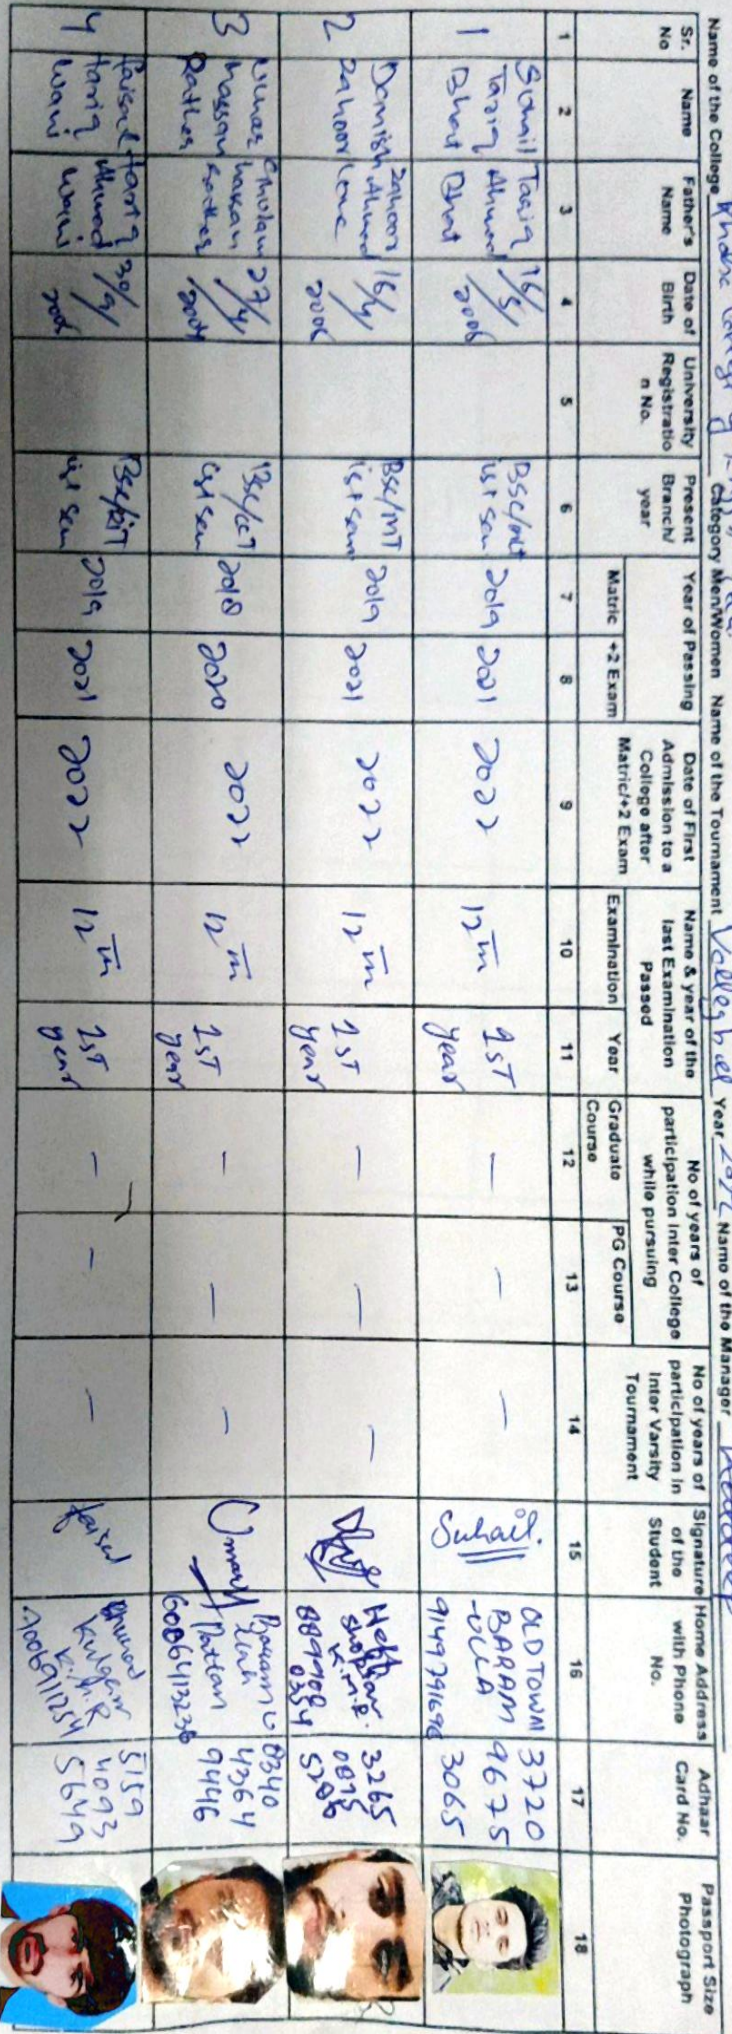 Name of the College Khalsa College of Category Men/Women Name of the Tournament Volleyball Year Name of the Manager
Sr. No Name Father's Name Date of Birth University Registratio n No. Present Branch/ year Year of Passing Date of First Admission to a College after Matric/+2 Exam Name & year of the last Examination Passed No of years of participation Inter College while pursuing No of years of participation in Inter Varsity Tournament Signature of the Student Home Address with Phone No. Adhaar Card No. Passport Size Photograph
Matric +2 Exam Examination Year Graduate Course PG Course
1 2 3 4 5 6 7 8 9 10 11 12 13 14 15 16 17 18
1 Suhail Tariq Bhat Tariq Ahmad Bhat 16/5/2006 BSc/mlt ist sem 2019 2021 2022 12th 1st year — — — Suhail. OLD TOWN BARAM -ULLA 9149791698 3720 9675 3065
2 Danish Zahoor Lone Zahoor Ahmad 16/4/2006 BSc/MT ist sem 2019 2021 2022 12th 1st year — — — K.M.R. 3265 0875
3 Umar Hassan Rather Ghulam Hassan Rather 27/4/ BSc/CT ist sem 2018 2020 2022 12th 1st year — — — Umar Pattan 6006413236 0340 4364 9446
4 Faisal Tariq Wani Tariq Ahmad Wani 30/9/ BSc/ ist sem 2019 2021 2022 12th 1st year — — — faisal Kulgam K.M.R 7006911254 5159 4093 5649